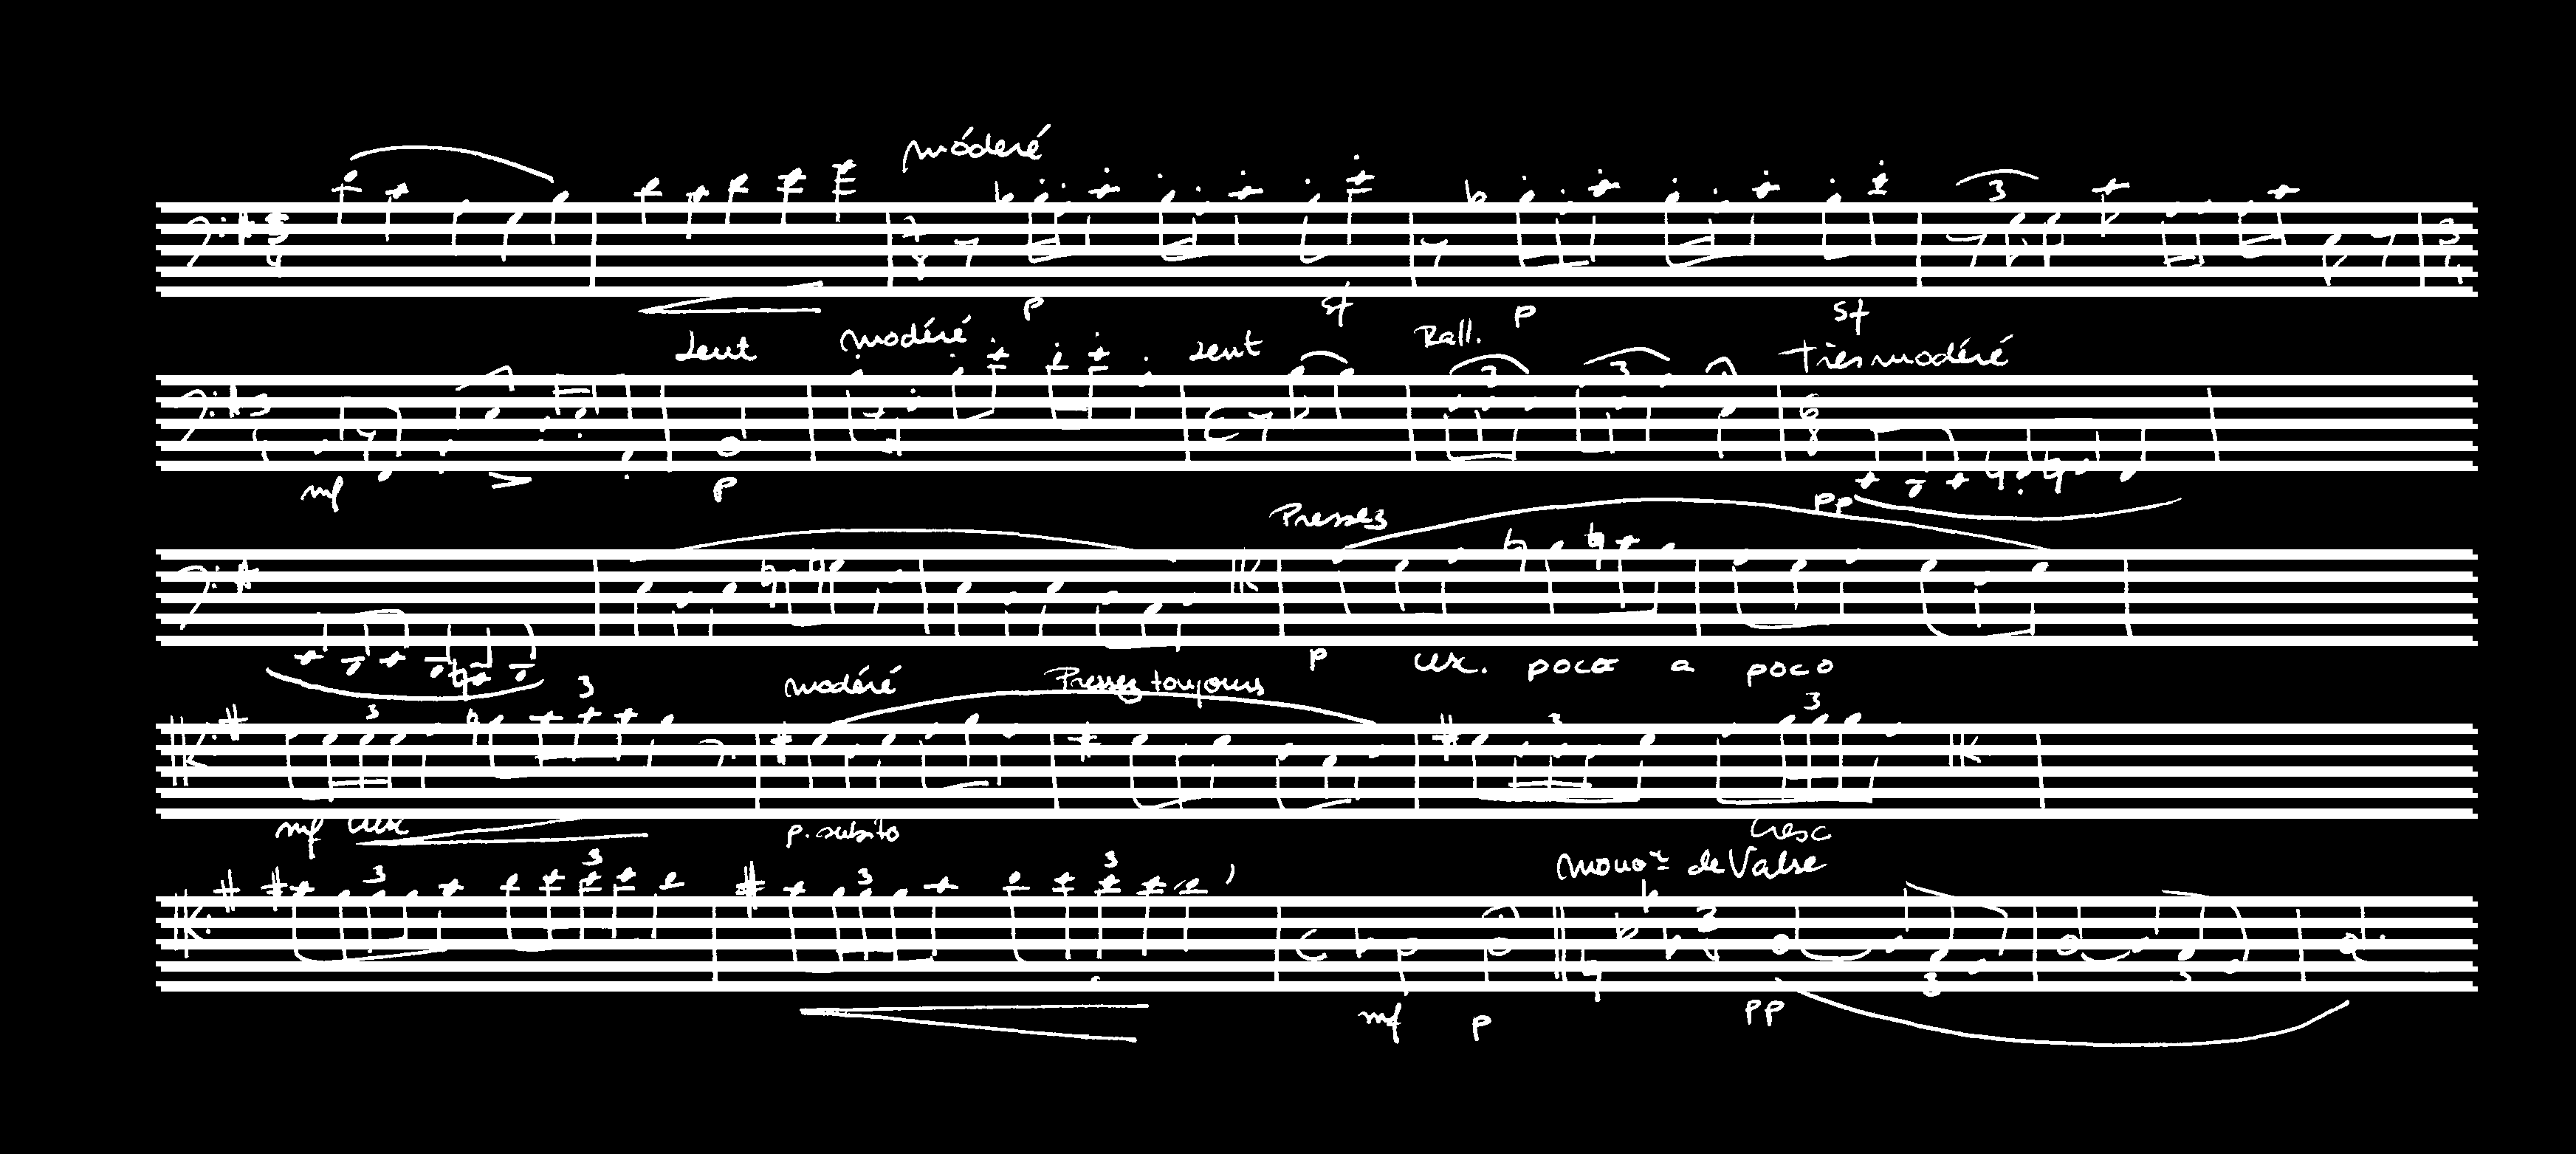 móderé
p sf p sf
3
Lent modéré Lent Rall. Tres modéré
3 3
mf p pp
Pressez
p cex. poco a poco
3 modéré Pressez toujours
3 3 3
mf p. subito Cresc
3 3 3 3 de Valse
mf p pp
3 3